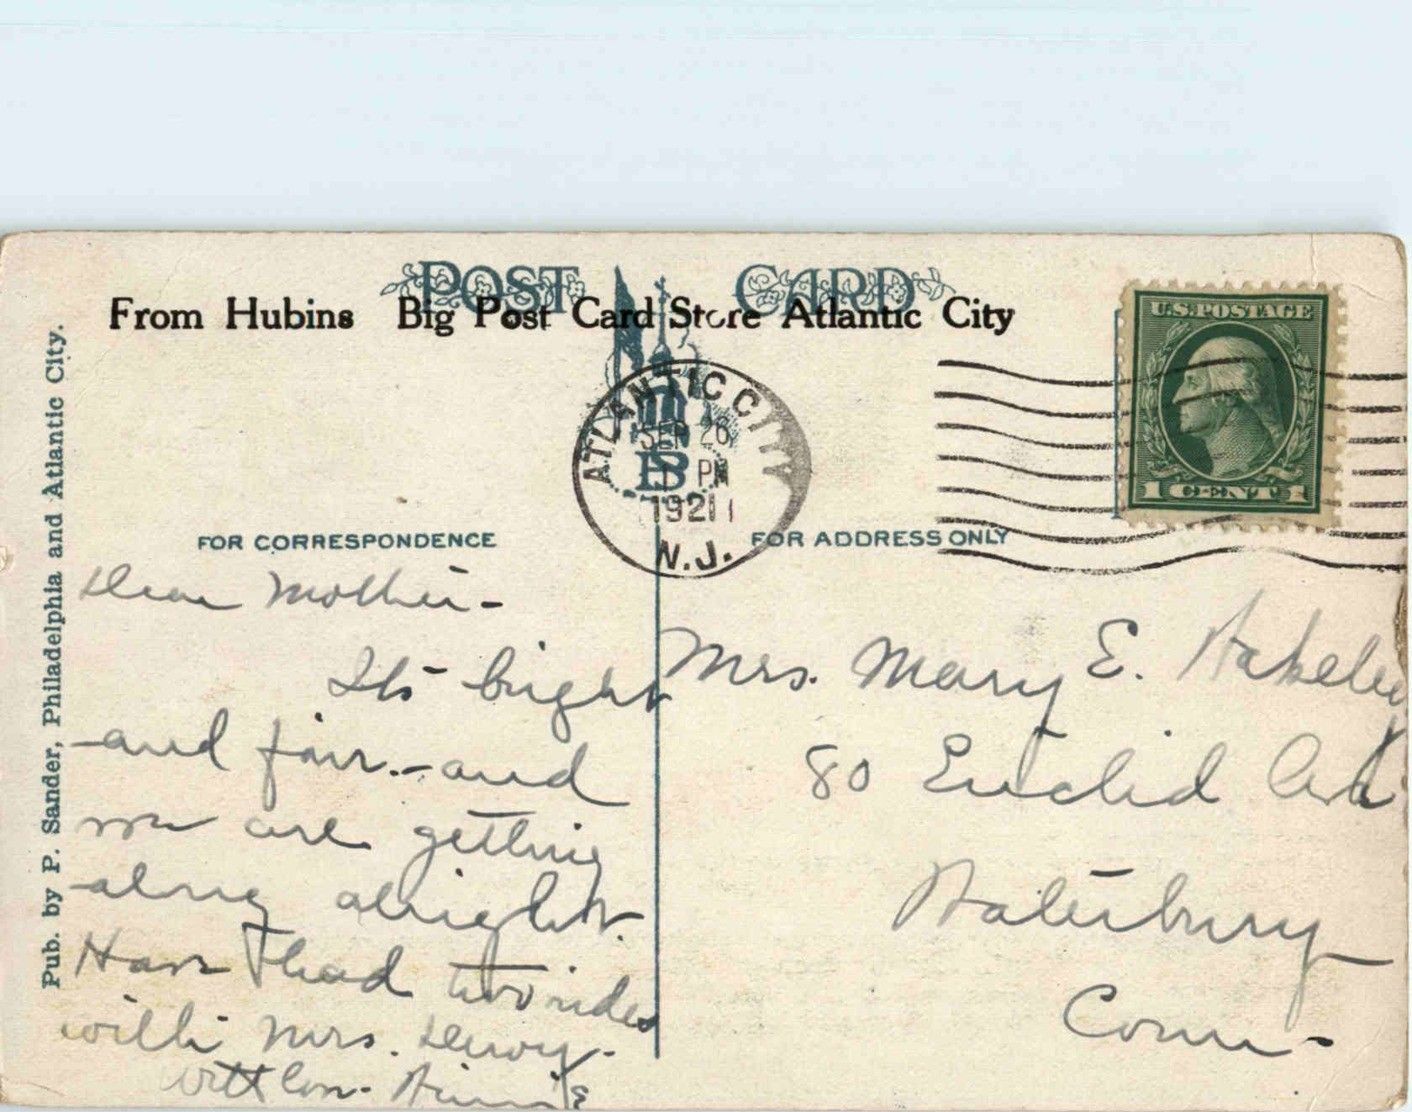 POST CARD
From Hubins Big Post Card Store Atlantic City
U.S. POSTAGE
1 CENT 1
ATLANTIC CITY
SEP 26
PM
1921
N.J.
PS
FOR CORRESPONDENCE
FOR ADDRESS ONLY
Pub. by P. Sander, Philadelphia and Atlantic City.
Dear Mother-
Its bright
and fair.-and
we are getting
along alright.
Have had two rides
with Mrs.
With love-
Mrs. Mary E.
80 Euclid Ave
Waterbury
Conn-